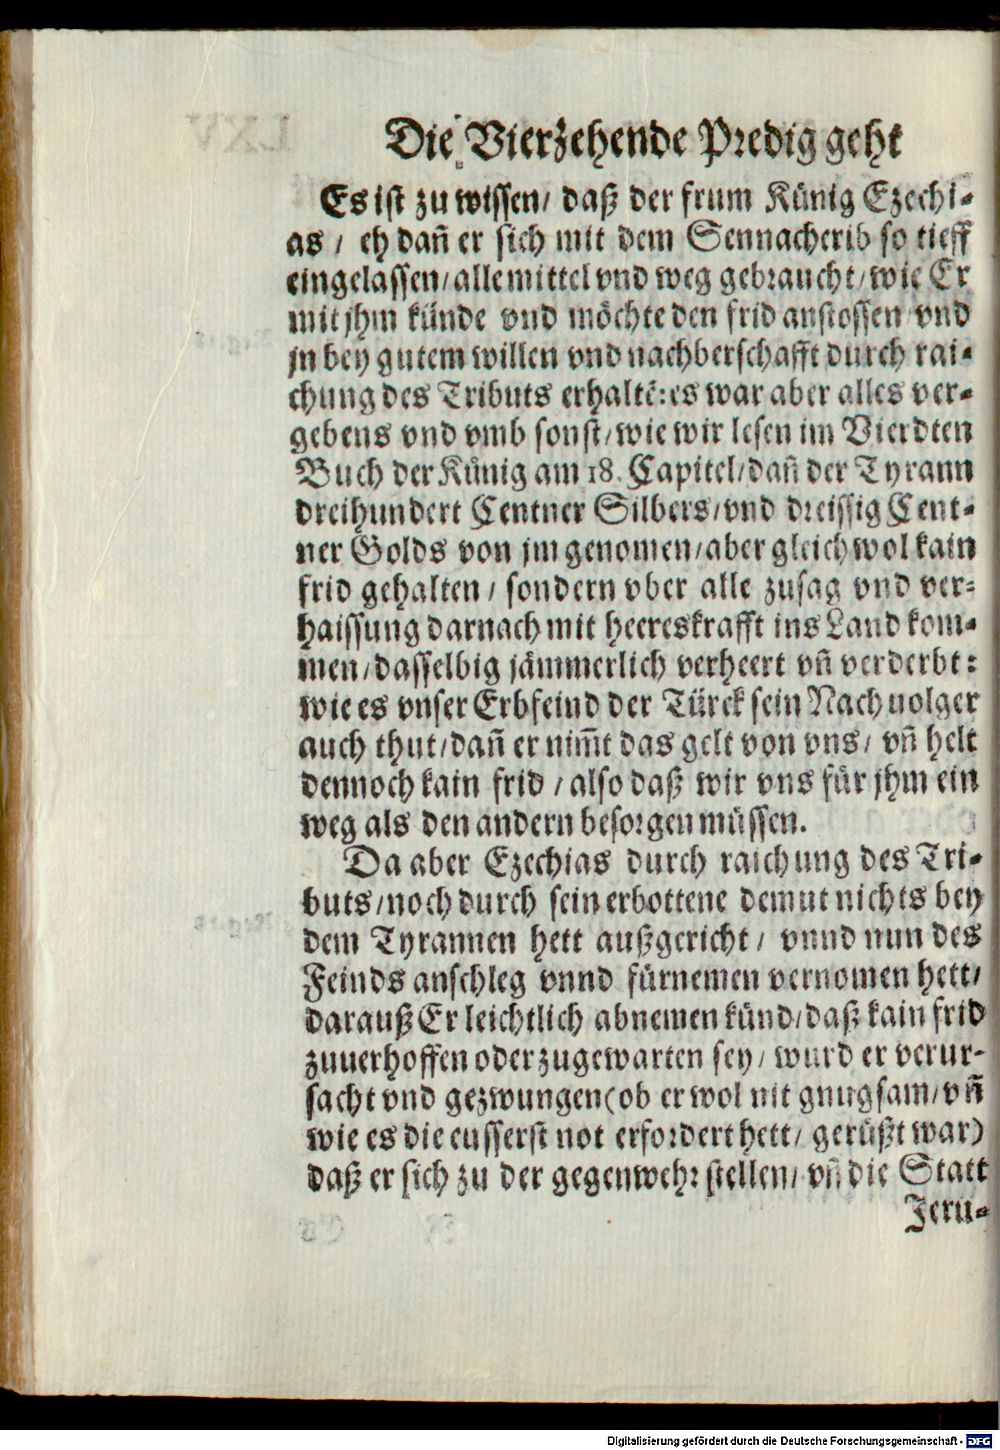 Die Vierzehende Predig geht
Es ist zu wissen/ daß der frum Künig Ezechi-
as / eh dañ er sich mit dem Sennacherib so tieff
eingelassen/ alle mittel vnd weg gebraucht/ wie Er
mit jhm künde vnd möchte den frid anstossen vnd
jn bey gutem willen vnd nachberschafft durch rai-
chung des Tributs erhaltẽ: es war aber alles ver-
gebens vnd vmb sonst/ wie wir lesen im Vierdten
Buch der Künig am 18. Capitel/ dañ der Tyrann
dreihundert Centner Silbers/ vnd dreissig Cent-
ner Golds von jm genomen/ aber gleich wol kain
frid gehalten / sondern vber alle zusag vnd ver-
haissung darnach mit heereskrafft ins Land kom-
men/ dasselbig jämmerlich verheert vñ verderbt:
wie es vnser Erbfeind der Türck sein Nachuolger
auch thut/ dañ er nim̃t das gelt von vns/ vñ helt
dennoch kain frid / also daß wir vns für jhm ein
weg als den andern besorgen müssen.
Da aber Ezechias durch raichung des Tri-
buts/ noch durch sein erbottene demut nichts bey
dem Tyrannen hett außgericht / vnnd nun des
Feinds anschleg vnnd fürnemen vernomen hett/
darauß Er leichtlich abnemen künd/ daß kain frid
zuuerhoffen oder zugewarten sey/ wurd er verur-
sacht vnd gezwungen (ob er wol nit gnugsam/ vñ
wie es die eusserst not erfordert hett/ gerüßt war)
daß er sich zu der gegenwehr stellen/ vñ die Statt
Jeru-
Digitalisierung gefördert durch die Deutsche Forschungsgemeinschaft - DFG